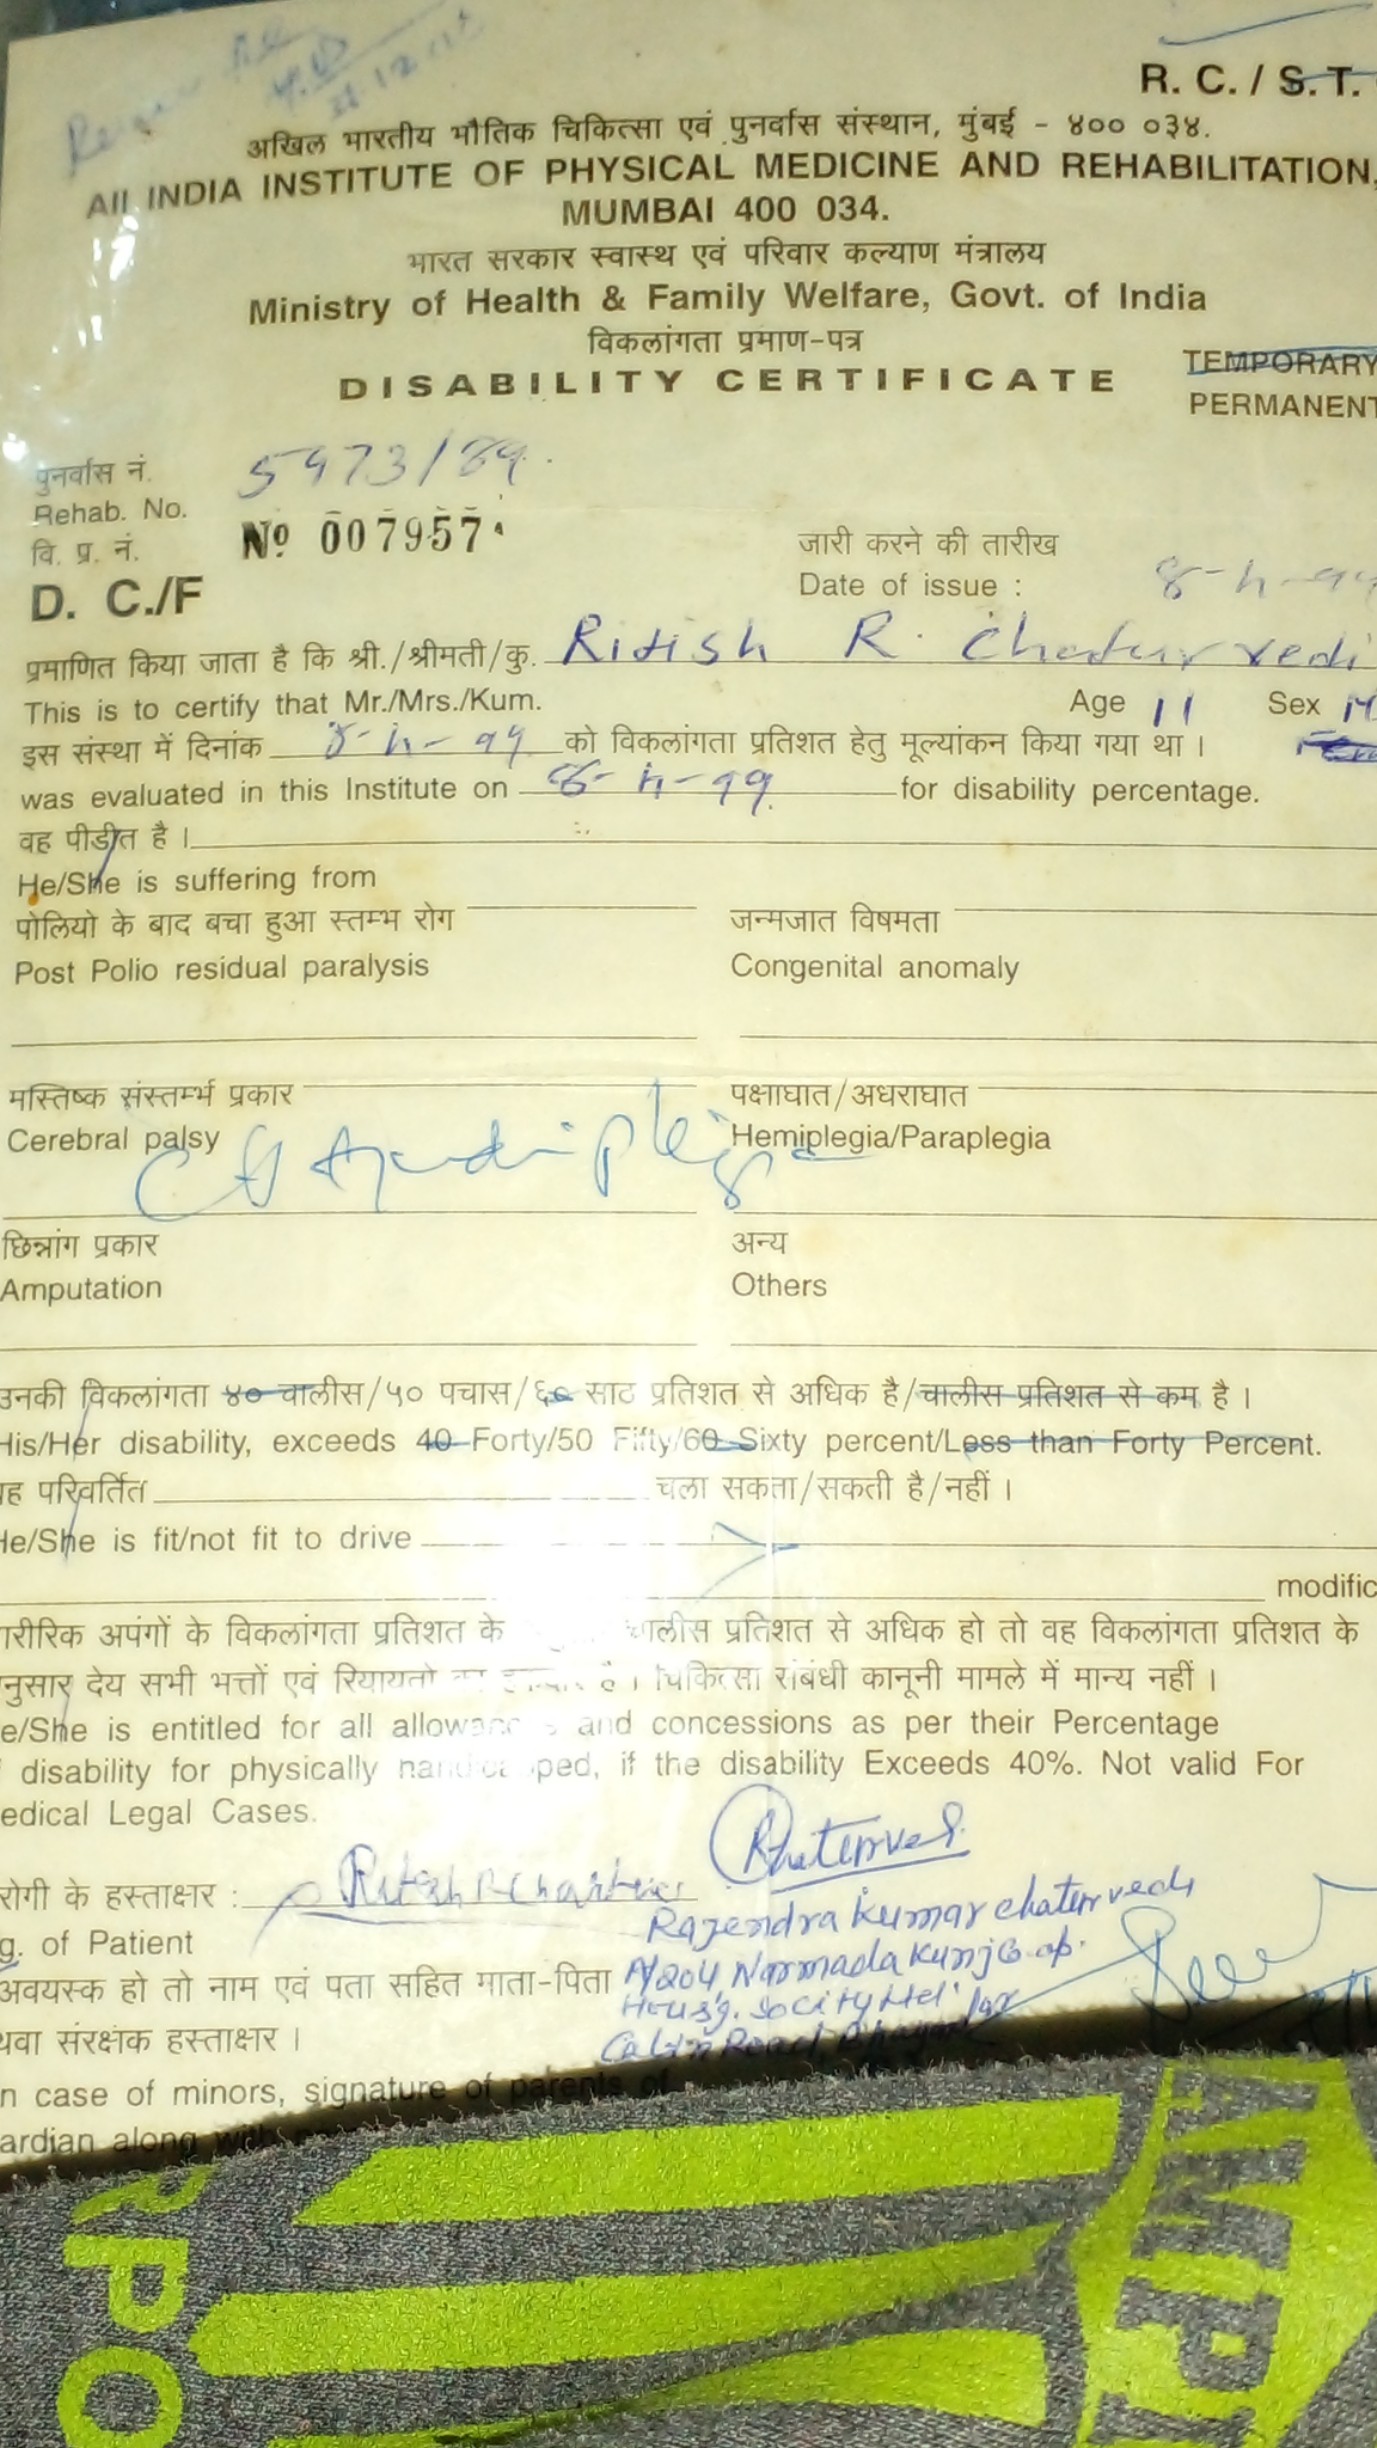 R. C. / S. T.
अखिल भारतीय भौतिक चिकित्सा एवं पुनर्वास संस्थान, मुंबई - ४०० ०३४.
All INDIA INSTITUTE OF PHYSICAL MEDICINE AND REHABILITATION,
MUMBAI 400 034.
भारत सरकार स्वास्थ एवं परिवार कल्याण मंत्रालय
Ministry of Health & Family Welfare, Govt. of India
विकलांगता प्रमाण-पत्र
TEMPORARY
DISABILITY CERTIFICATE
PERMANENT
पुनर्वास नं.
Rehab. No. 5973/89.
वि. प्र. नं. Nº 007957
जारी करने की तारीख
D. C./F Date of issue :
प्रमाणित किया जाता है कि श्री./श्रीमती/कु. Ritish R. Chaturvedi
This is to certify that Mr./Mrs./Kum. Age 11 Sex M
इस संस्था में दिनांक को विकलांगता प्रतिशत हेतु मूल्यांकन किया गया था ।
was evaluated in this Institute on for disability percentage.
वह पीडीत है ।
He/She is suffering from
पोलियो के बाद बचा हुआ स्तम्भ रोग जन्मजात विषमता
Post Polio residual paralysis Congenital anomaly
मस्तिष्क संस्तर्म्भ प्रकार पक्षाघात/अधराघात
Cerebral palsy Hemiplegia/Paraplegia
छिन्नांग प्रकार अन्य
Amputation Others
उनकी विकलांगता ४० चालीस/५० पचास/६० साठ प्रतिशत से अधिक है/चालीस प्रतिशत से कम है ।
His/Her disability, exceeds 40 Forty/50 Fifty/60 Sixty percent/Less than Forty Percent.
ह परिवर्तित चला सकता/सकती है/नहीं ।
He/She is fit/not fit to drive
modific
ारीरिक अपंगों के विकलांगता प्रतिशत के चालीस प्रतिशत से अधिक हो तो वह विकलांगता प्रतिशत के
नुसार देय सभी भत्तों एवं रियायतो है । चिकित्सा संबंधी कानूनी मामले में मान्य नहीं ।
e/She is entitled for all allowances and concessions as per their Percentage
disability for physically handicapped, if the disability Exceeds 40%. Not valid For
edical Legal Cases.
रोगी के हस्ताक्षर :
g. of Patient
Rajendra Kumar chaturvedi
अवयस्क हो तो नाम एवं पता सहित माता-पिता A/204, Narmada Kunj Co. op.
Housg. Socity Ltd.
थवा संरक्षक हस्ताक्षर ।
n case of minors, signature of parents or
ardian along with
RPO